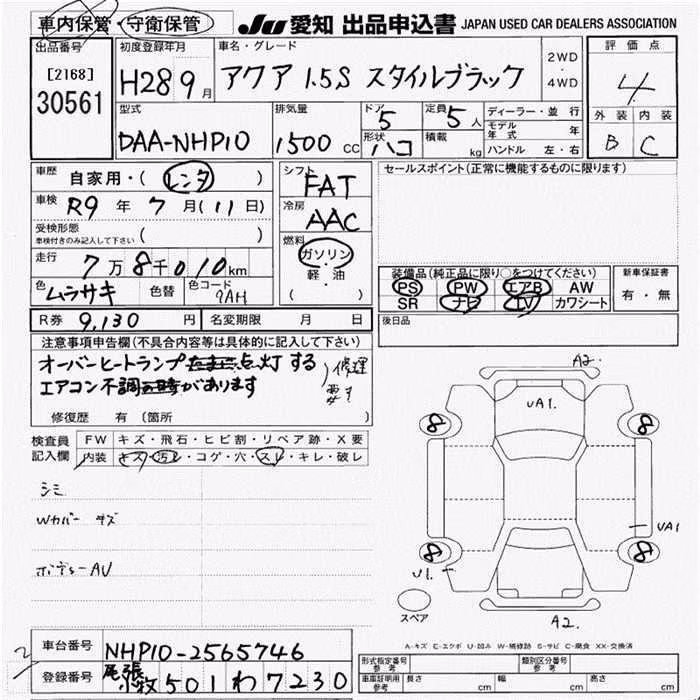 車内保管・守衛保管 JU 愛知 出品申込書 JAPAN USED CAR DEALERS ASSOCIATION
出品番号 初度登録年月 車名・グレード 評価点
[2168] 30561 H28 9月 アクア 1.5S スタイルブラック 2WD・4WD 4
型式 排気量 ドア 5 定員 5人 ディーラー・並行 外装 内装
DAA-NHP10 1500 CC 形状 ハコ 積載 kg モデル年式 年 B C
ハンドル 左・右
車歴 自家用・(レンタ) シフト FAT セールスポイント(正常に機能するものに限ります)
車検 R9年 7月(11日) 冷房 AAC
受検形態 車検付きのみ記入して下さい ( ) 燃料 ガソリン・軽・油 ( )
走行 7万8千010km 装備品(純正品に限り○をつけてください) 新車保証書
PS PW エアB AW 有・無
色 ムラサキ 色替 色コード 9AH SR ナビ TV カワシート
R券 9,130円 名変期限 月 日 後日品
注意事項申告欄(不具合内容等は具体的に記入して下さい)
オーバーヒートランプ 点灯する
エアコン不調 があります
修理要す
修復歴 有 〔箇所 〕
検査員記入欄 FW キズ・飛石・ヒビ割・リペア跡・X要
内装 キズ・汚レ・コゲ・穴・スレ・キレ・破レ
シミ
Wカバー キズ
ボディーAU
A2.
UA1.
8 8
UA1
8 8
U1.
スペア A2.
A-キズ E-エクボ U-凹み W-補修跡 S-サビ C-腐食 XX-交換済
車台番号 NHP10-2565746 形式指定番号 参考 類別区分番号 参考
登録番号 尾張小牧 501 わ 7230 車庫証明用 参考 長さ cm 幅 cm 高さ cm